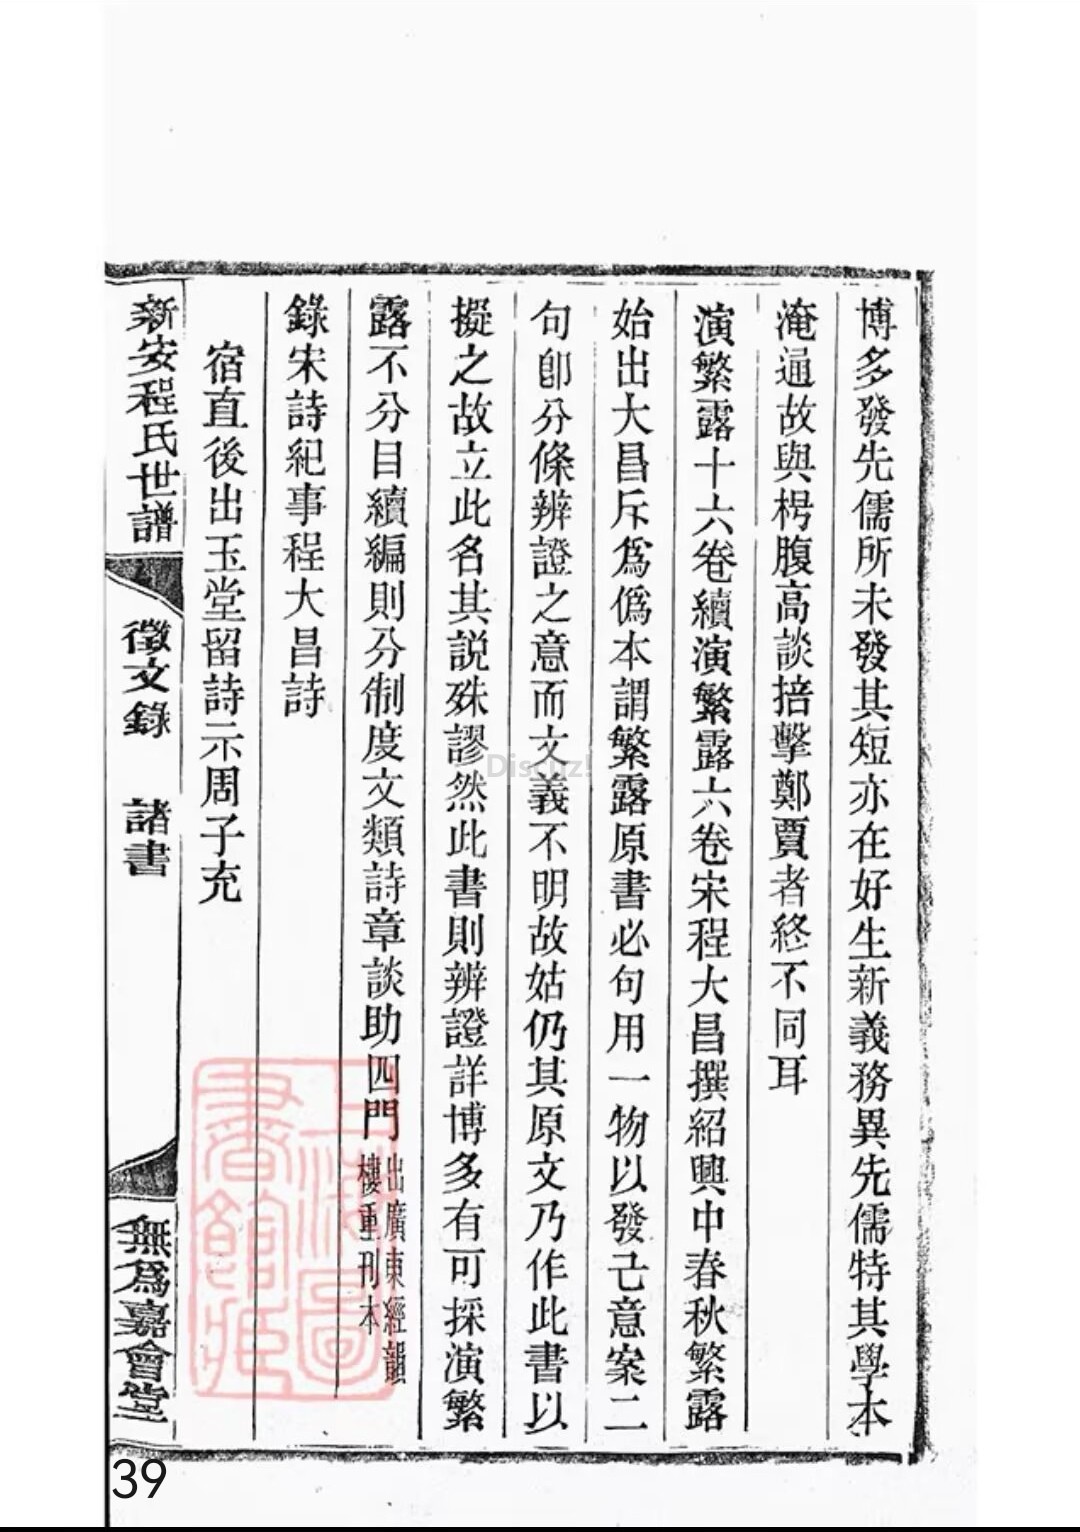 博多發先儒所未發其短亦在好生新義務異先儒特其學本
淹通故與枵腹高談掊擊鄭賈者終不同耳
演繁露十六卷續演繁露六卷宋程大昌撰紹興中春秋繁露
始出大昌斥爲僞本謂繁露原書必句用一物以發己意案二
句卽分條辨證之意而文義不明故姑仍其原文乃作此書以
擬之故立此名其説殊謬然此書則辨證詳博多有可採演繁
露不分目續編則分制度文類詩章談助四門
出廣東經韻
樓重刊本
錄宋詩紀事程大昌詩
宿直後出玉堂留詩示周子充
新安程氏世譜
徵文錄
諸書
無爲嘉會堂
上海圖
書館藏
Discuz!
39